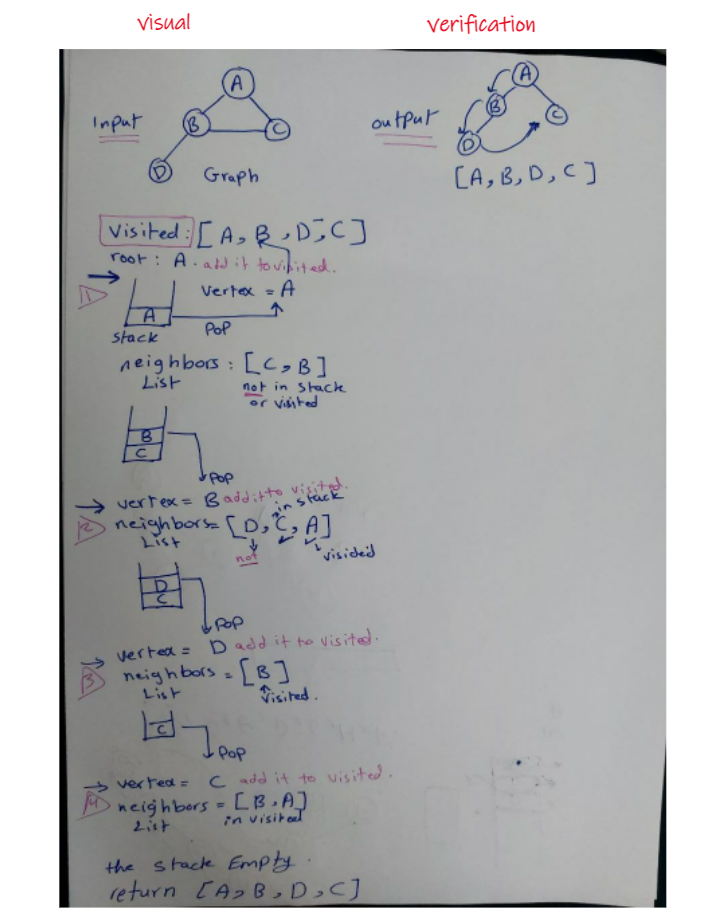 visual
verification
Input
A
B
C
D
Graph
output
A
B
C
D
[A, B, D, C]
Visited: [A, B, D, C]
root: A. add it to visited.
1
vertex = A
A
POP
stack
neighbors: [C, B]
List
not in stack
or visited
B
C
POP
vertex = B add it to visited.
in stack
2
neighbors= [D, C, A]
List
not
visided
D
C
POP
vertex = D add it to visited.
3
neighbors = [B]
List
visited.
C
POP
vertex = C add it to visited.
4
neighbors = [B, A]
List
in visited
the stack Empty.
return [A, B, D, C]